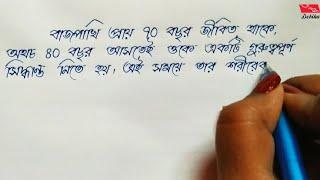 বাজপাখি প্রায় 70 বছর জীবিত থাকে,
অথচ 40 বছর আসতেই ওকে একটি গুরুত্বপূর্ণ
সিদ্ধান্ত নিতে হয়, এই সময়ে তার শরীরের